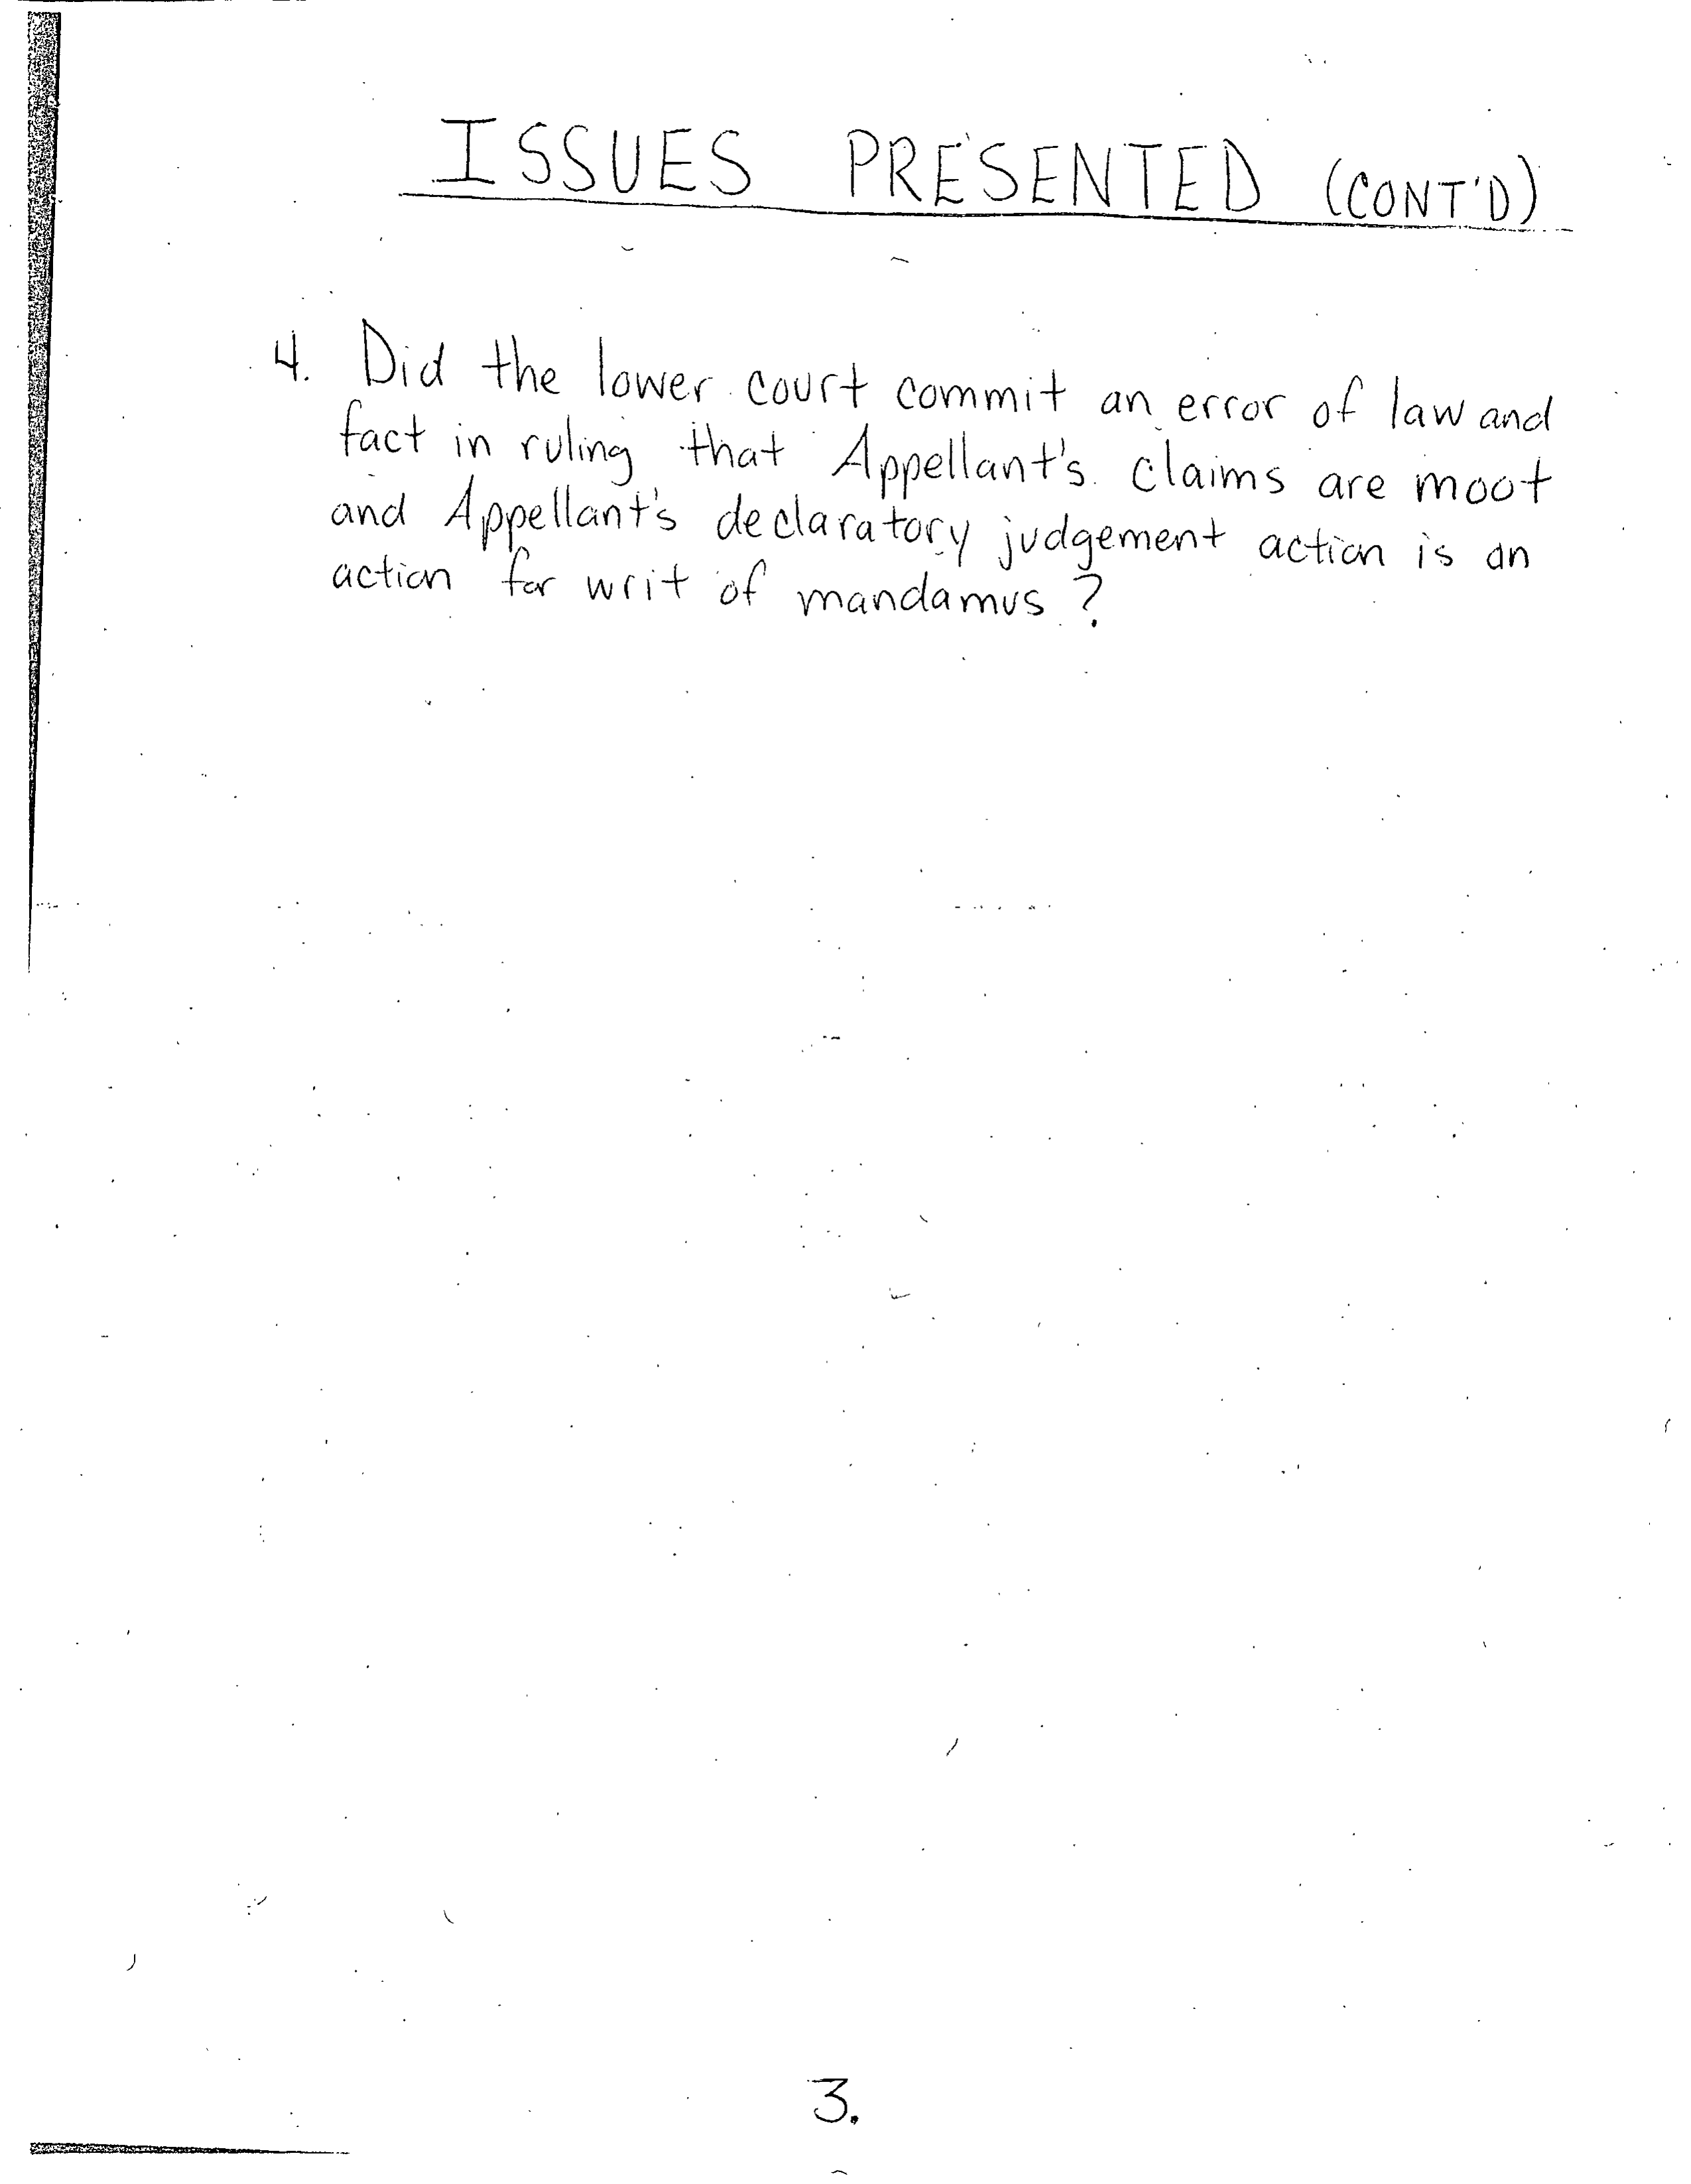 ISSUES PRESENTED (CONT'D)
4. Did the lower court commit an error of law and
fact in ruling that Appellant's claims are moot
and Appellant's declaratory judgement action is an
action for writ of mandamus?
3.